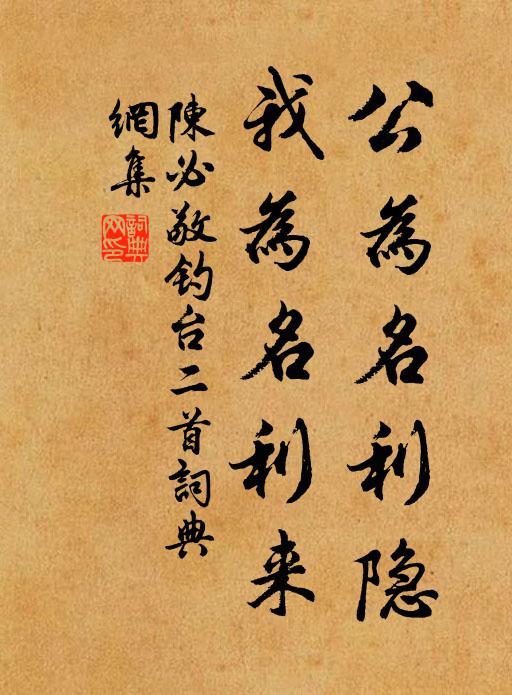 公為名利隐
我為名利来
陳必敬钓台二首詞典
網集
詞典
网印